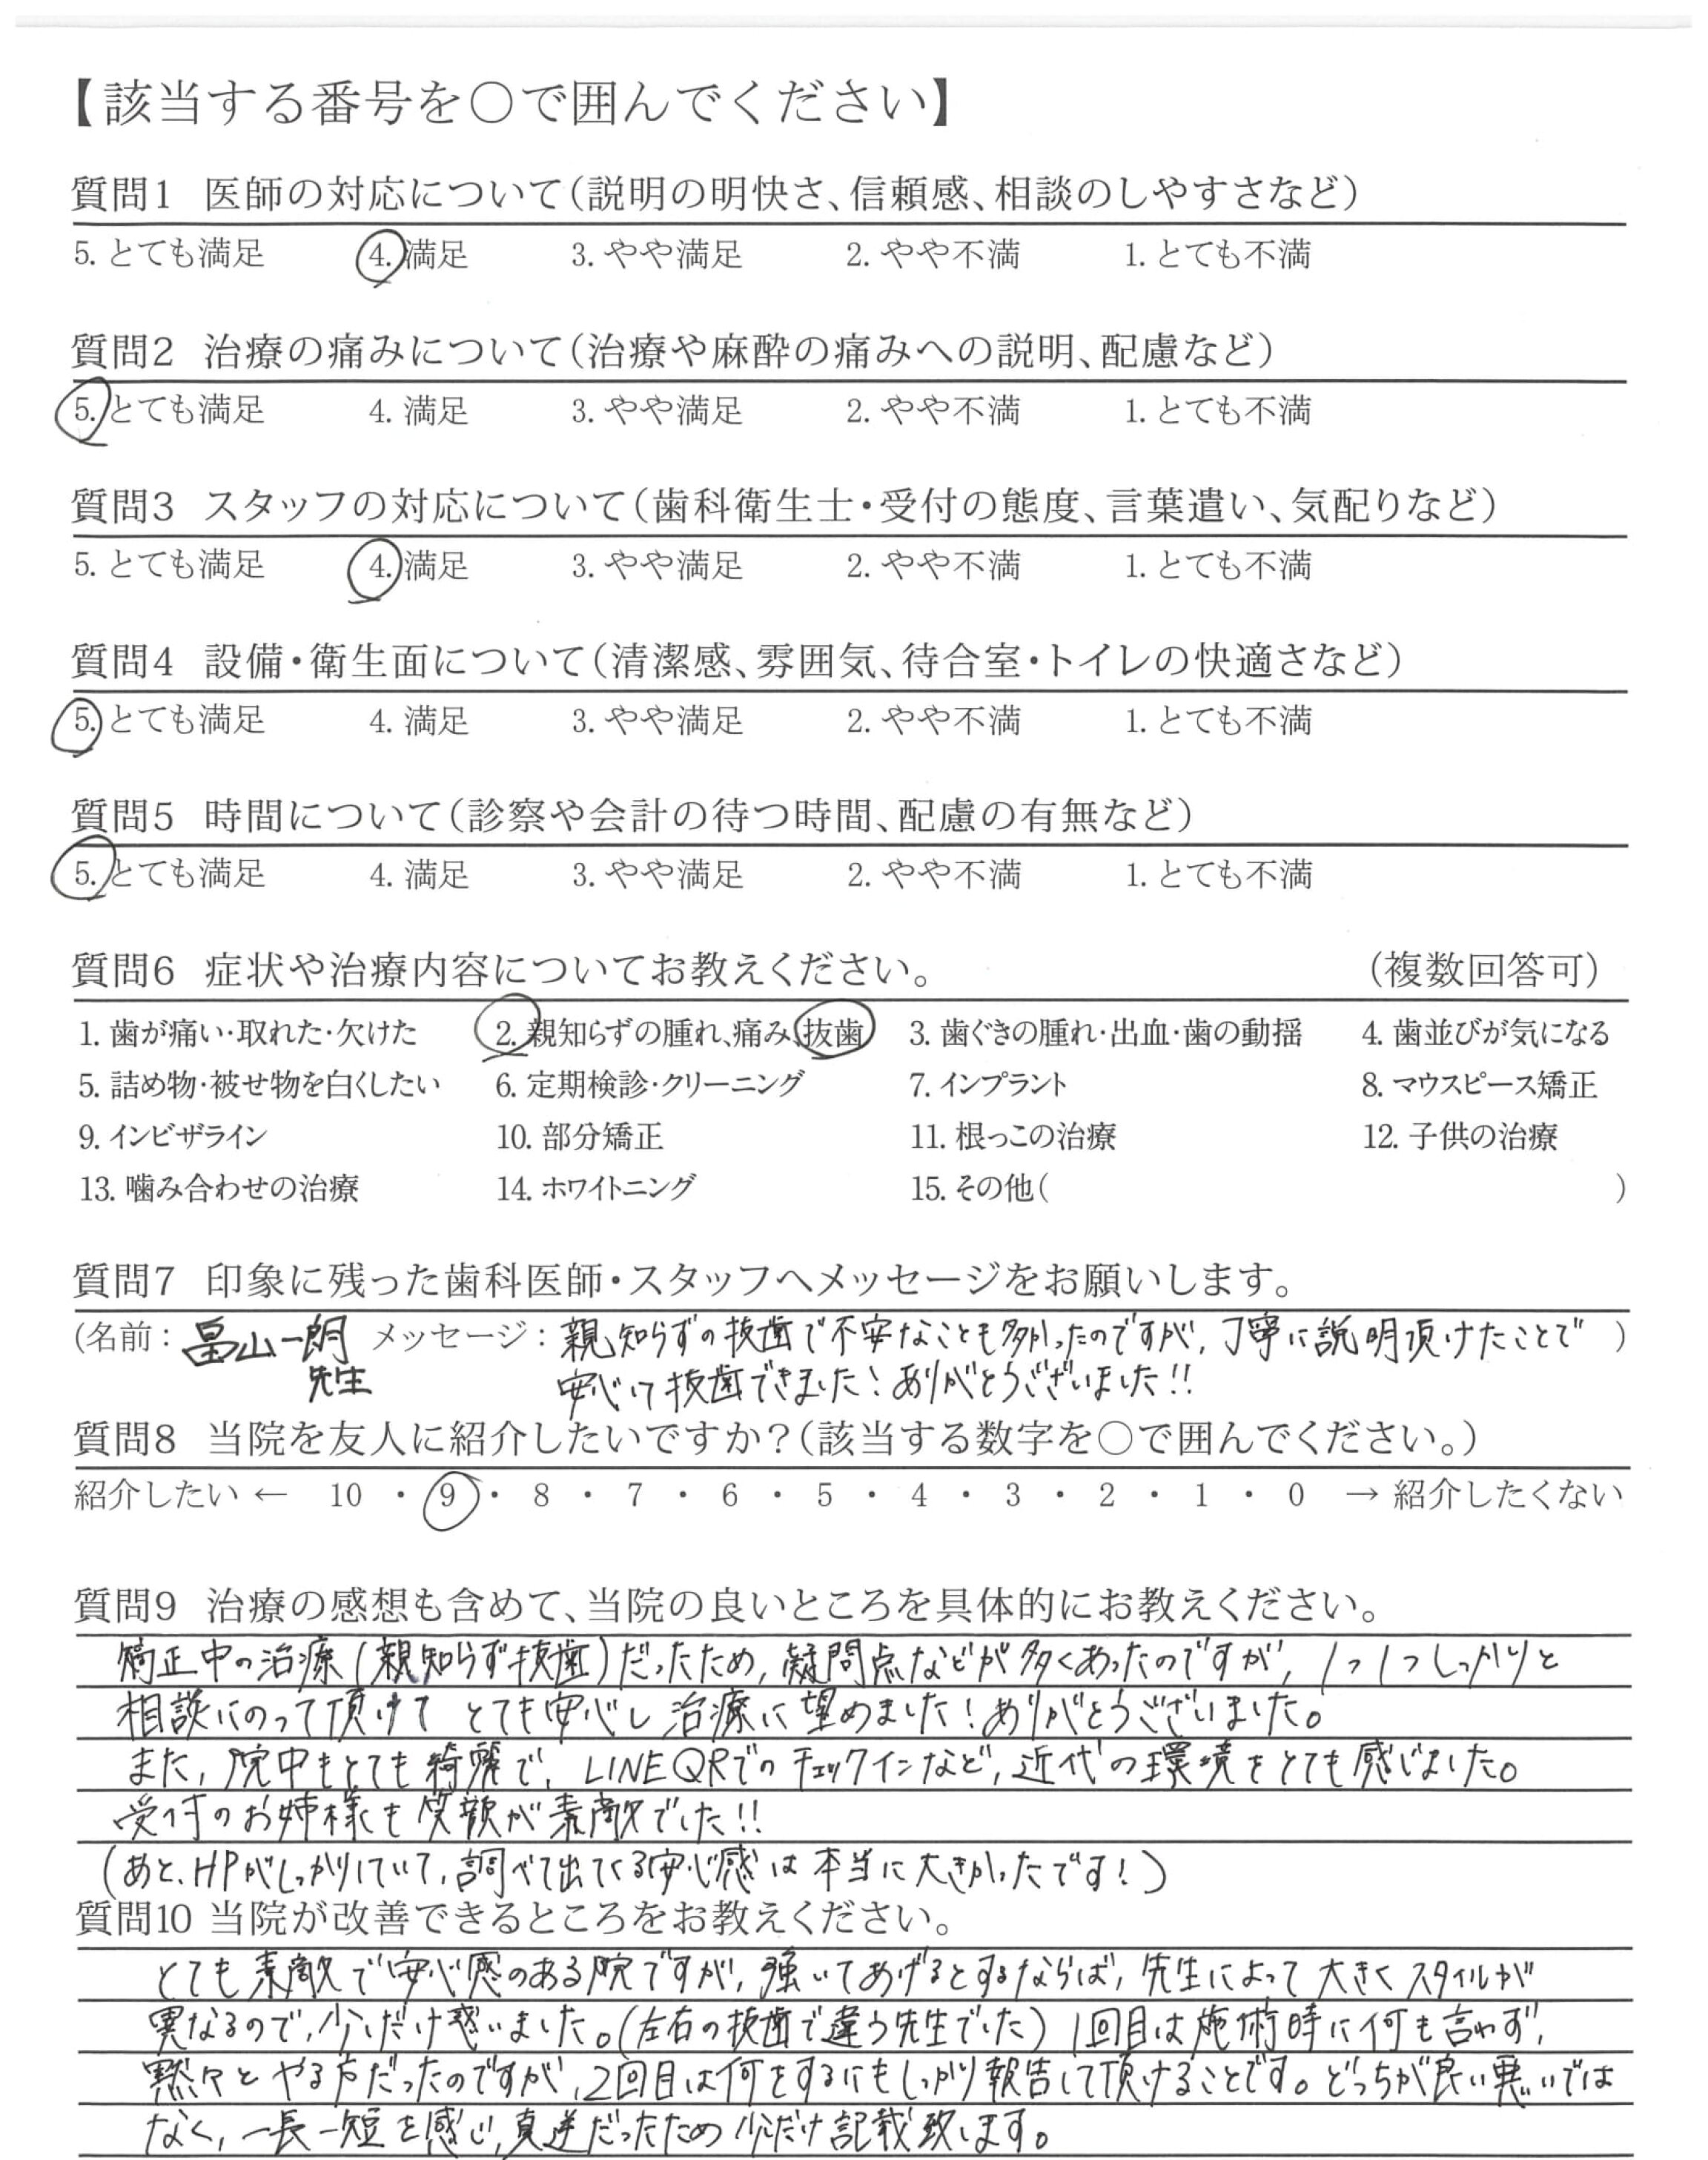 【該当する番号を〇で囲んでください】
質問1 医師の対応について(説明の明快さ、信頼感、相談のしやすさなど)
5. とても満足 4. 満足 3. やや満足 2. やや不満 1. とても不満
質問2 治療の痛みについて(治療や麻酔の痛みへの説明、配慮など)
5. とても満足 4. 満足 3. やや満足 2. やや不満 1. とても不満
質問3 スタッフの対応について(歯科衛生士・受付の態度、言葉遣い、気配りなど)
5. とても満足 4. 満足 3. やや満足 2. やや不満 1. とても不満
質問4 設備・衛生面について(清潔感、雰囲気、待合室・トイレの快適さなど)
5. とても満足 4. 満足 3. やや満足 2. やや不満 1. とても不満
質問5 時間について(診察や会計の待つ時間、配慮の有無など)
5. とても満足 4. 満足 3. やや満足 2. やや不満 1. とても不満
質問6 症状や治療内容についてお教えください。 (複数回答可)
1. 歯が痛い・取れた・欠けた 2. 親知らずの腫れ、痛み、抜歯 3. 歯ぐきの腫れ・出血・歯の動揺 4. 歯並びが気になる
5. 詰め物・被せ物を白くしたい 6. 定期検診・クリーニング 7. インプラント 8. マウスピース矯正
9. インビザライン 10. 部分矯正 11. 根っこの治療 12. 子供の治療
13. 噛み合わせの治療 14. ホワイトニング 15. その他( )
質問7 印象に残った歯科医師・スタッフへメッセージをお願いします。
(名前: 畠山一朗 メッセージ: 親知らずの抜歯で不安なことも多かったのですが、丁寧に説明頂けたことで )
先生 安心して抜歯できました!ありがとうございました!!
質問8 当院を友人に紹介したいですか?(該当する数字を〇で囲んでください。)
紹介したい ← 10 ・ 9 ・ 8 ・ 7 ・ 6 ・ 5 ・ 4 ・ 3 ・ 2 ・ 1 ・ 0 → 紹介したくない
質問9 治療の感想も含めて、当院の良いところを具体的にお教えください。
矯正中の治療(親知らず抜歯)だったため、疑問点などが多くあったのですが、1つ1つしっかりと
相談にのって頂けて とても安心し治療に望めました!ありがとうございました。
また、院中もとても綺麗で、LINE QRでのチェックインなど、近代の環境をとても感じました。
受付のお姉様も笑顔が素敵でした!!
(あと、HPがしっかりしていて、調べて出てくる安心感は本当に大きかったです!)
質問10 当院が改善できるところをお教えください。
とても素敵で安心感のある院ですが、強いてあげるとするならば、先生によって大きくスタイルが
異なるので、少しだけ惑いました。(左右の抜歯で違う先生でした)1回目は施術時に何も言わず、
黙々とやる方だったのですが、2回目は何をするにもしっかり報告して頂けることです。どっちが良い悪いでは
なく、一長一短を感じ、真逆だったため少しだけ記載致します。